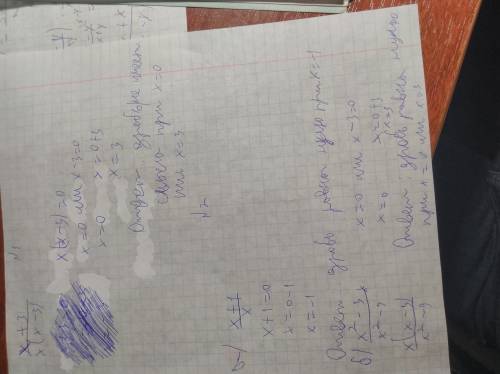 №1
x+3
x(x-3)
x(x-3)=0
x=0 или x-3=0
x=0 x=0+3
x=3
Ответ: дробь имеет
смысл при x=0
или x=3
№2
x+1
x
x+1=0
x=0-1
x=-1
Ответ дробь равна нулю при x=-1
б) x²-3x
x²-9
x=0 или x-3=0
x=0 x=0+3
x=3
x(x-3)
x²-9
Ответ: дробь равна нулю
при x=0 или x=3